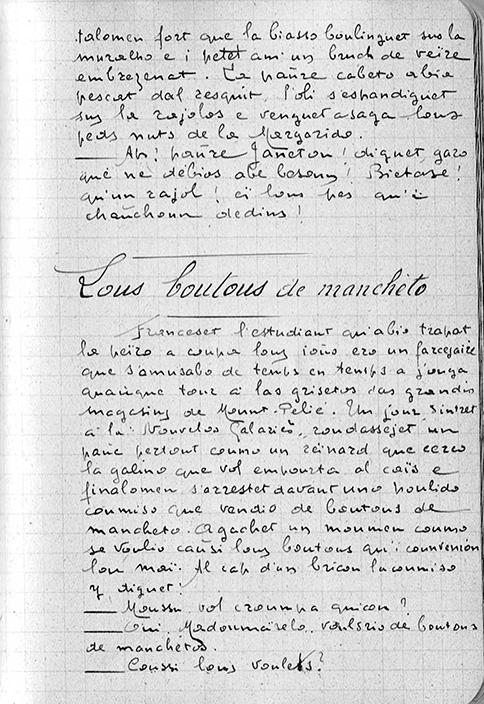 talomen fort que la biasso boulinguet sus la
muralho e i petèt ami un bruch de veïre
embrezenat. La paŭre cabeto abiò
pescat dal resquit, l'oli s'espandiguet
sus la rajolos e venguet asaga lous
peds nuts de la Margarido.
— Ah! paŭre Janetou! diguet, garo
que ne débios abé besoun! Bietase!
qu'un rajol! ei lous pes qu'i
chaŭchoun dedins!
Lous boutous de manchèto
Franceset l'estudiant qu'abiò trapat
la pèiro a coupa lous ioŭs ero un farcejaïre
que s'amusabo de temps en temps a jouga
quaŭque tour à las grisetos das grandis
magasins de Mount-Peliè. Un jour s'intret
à la Nouvelos Galariès, roundassejet un
paŭc pertout coumo un reinard que cerco
la galino que vol empourta al caïs e
finalomen, s'arrestet davant uno poulido
coumiso que vendio de boutous de
mancheto. Agachet un moumen coumo
se vouliò caŭsi lous boutous qu'i counvenioŭ
lou maï. Al cap d'un bricou la coumiso
y diguet:
— Moussu vol croumpa quicon?
— Oui, Madoumaïselo, voulsrio de boutous
de manchètos.
— Coussi lous voulets?